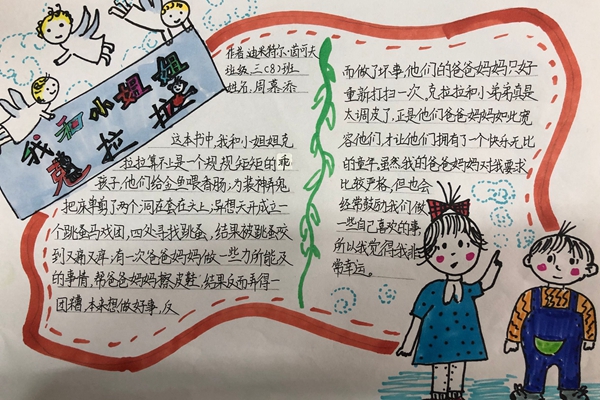 我和小姐姐
克拉拉
作者:迪米特尔·茵可夫
班级:三(8)班
姓名:周慕添
这本书中,我和小姐姐克
拉拉算不上是一个规规矩矩的乖
孩子,他们给金鱼喂香肠;为装神弄鬼
把床单剪了两个洞在套在头上;异想天开成立一
个跳蚤马戏团,四处寻找跳蚤,结果被跳蚤咬
到又痛又痒;有一次爸爸妈妈做一些力所能及
的事情,帮爸爸妈妈擦皮鞋,结果反而弄得一
团糟,本来想做好事,反
而做了坏事,他们的爸爸妈妈只好
重新打扫一次。克拉拉和小弟弟真是
太调皮了,正是他们爸爸妈妈如此宽
容他们,才让他们拥有了一个快乐无比
的童年。虽然我的爸爸妈妈对我要求
比较严格,但也会
经常鼓励我们做
一些自己喜欢的事,
所以我觉得我非
常幸运。